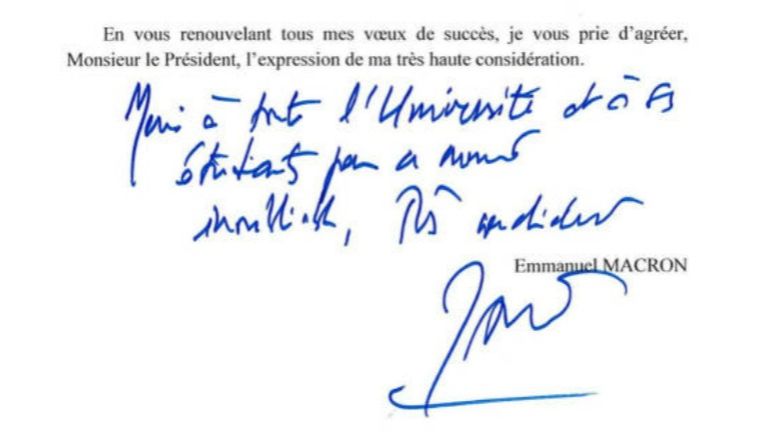 En vous renouvelant tous mes vœux de succès, je vous prie d'agréer,
Monsieur le Président, l'expression de ma très haute considération.
Merci à toute l'Université et à ses
étudiants pour ce moment
inoubliable, Très cordialement
Emmanuel MACRON